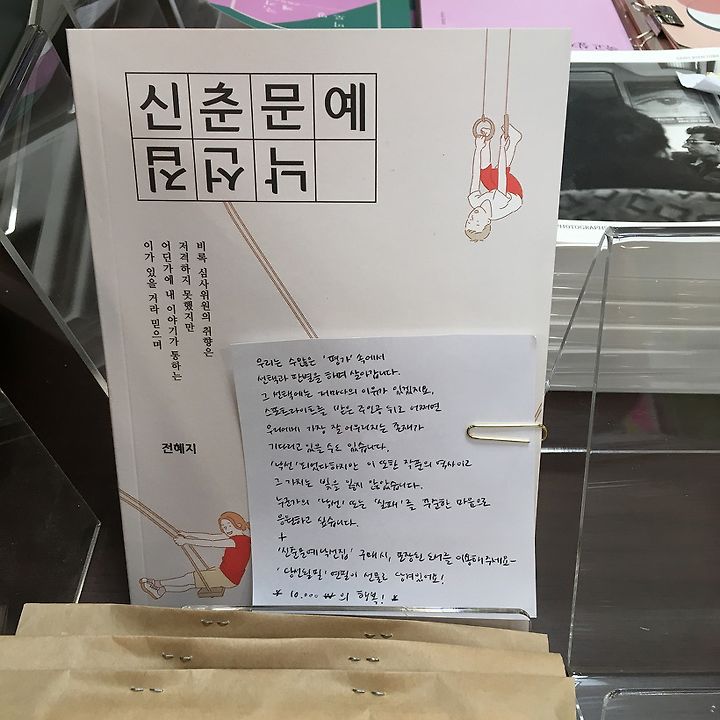 신춘문예
낙선집
비록 심사위원의 취향은
저격하지 못했지만
어딘가에 내 이야기가 통하는
이가 있을 거라 믿으며
전혜지
우리는 수많은 '평가' 속에서
선택과 판별을 하며 살아갑니다.
그 선택에는 저마다의 이유가 있겠지요.
스포트라이트를 받은 주인공 뒤로 어쩌면
우리에게 가장 잘 어우러지는 존재가
기다리고 있을 수도 있습니다.
'낙선'되었다하지만 이 또한 작품의 역사이고
그 가치는 빛을 잃지 않았습니다.
누군가의 '낙선' 또는 '실패'를 꾸준한 마음으로
응원하고 싶습니다.
+
'신춘문예낙선집' 구매시, 포장된 도서를 이용해주세요-
'당선될필' 연필이 선물로 담겨있어요!
* 10,000 ₩의 행복! *